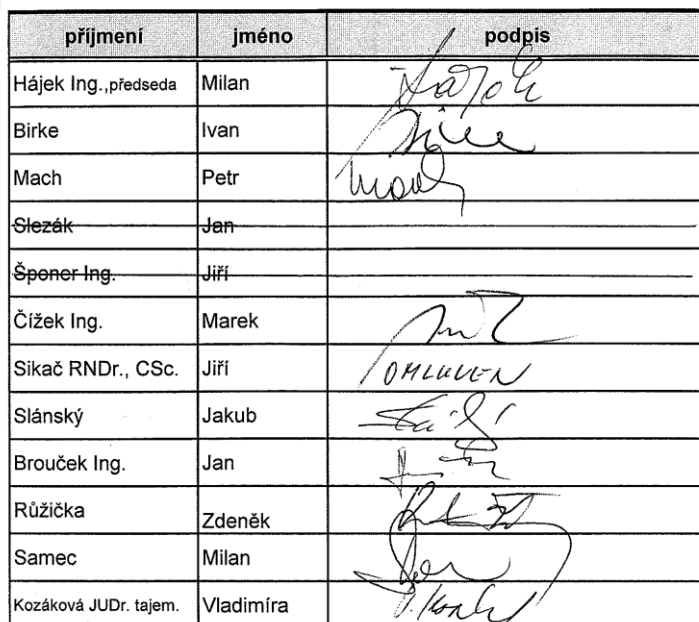 příjmení jméno podpis
Hájek Ing.,předseda Milan
Birke Ivan
Mach Petr
Slezák Jan
Šponer Ing. Jiří
Čížek Ing. Marek
Sikač RNDr., CSc. Jiří OMLUVEN
Slánský Jakub
Brouček Ing. Jan
Růžička Zdeněk
Samec Milan
Kozáková JUDr. tajem. Vladimíra